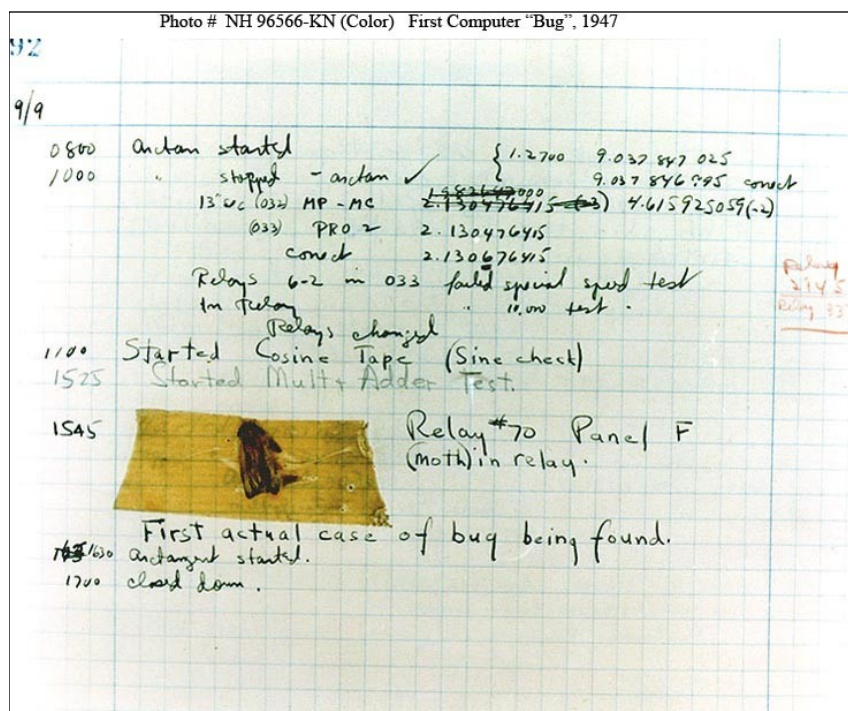 Photo # NH 96566-KN (Color) First Computer “Bug”, 1947
92
9/9
0800 Arctan started { 1.2700 9.037 847 025
1000 " stopped - arctan ✓ 9.037 846 995 correct
13"uc (032) MP - MC 2.130476415 (-3) 4.615925059(-2)
(033) PRO 2 2.130476415
correct 2.130676415
Relays 6-2 in 033 failed special speed test
In Relay " 10,000 test .
Relay
2145
Relay 337
Relays changed
1100 Started Cosine Tape (Sine check)
1525 Started Mult + Adder Test.
1545 Relay #70 Panel F
(moth) in relay.
First actual case of bug being found.
1630 arctangent started.
1700 closed down .